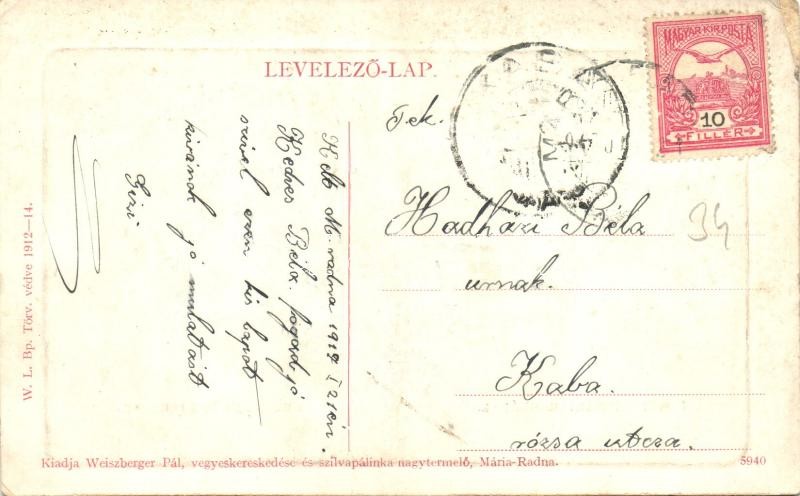 LEVELEZŐ-LAP.
MAGYAR·KIR·POSTA
10
FILLÉR
Tek.
Hadházi Béla
urnak.
Kaba.
rózsa utcza.
34
Kelt M. radna 1917 I 21én.
Kedves Béla. fogad jó
szivel ezen kis lapot
kivánok jó mulatást
Gizi
W. L. Bp. Törv. védve 1912—14.
Kiadja Weiszberger Pál, vegyeskereskedése és szilvapálinka nagytermelő, Mária-Radna.
5940